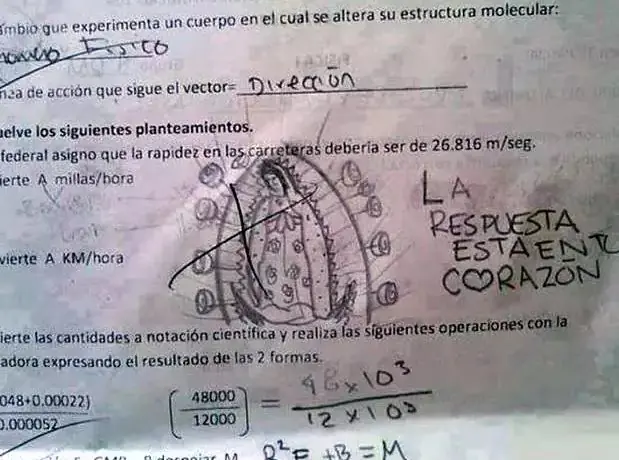 ambio que experimenta un cuerpo en el cual se altera su estructura molecular:
Fisico
nea de acción que sigue el vector= Dirección
uelve los siguientes planteamientos.
federal asigno que la rapidez en las carreteras debería ser de 26.816 m/seg.
ierte A millas/hora
LA
RESPUESTA
ESTA EN TU
CORAZÓN
vierte A KM/hora
ierte las cantidades a notación científica y realiza las siguientes operaciones con la
adora expresando el resultado de las 2 formas.
048+0.00022)
0.000052
(48000
12000) = 48x10³
12x10³
R²F +B = M